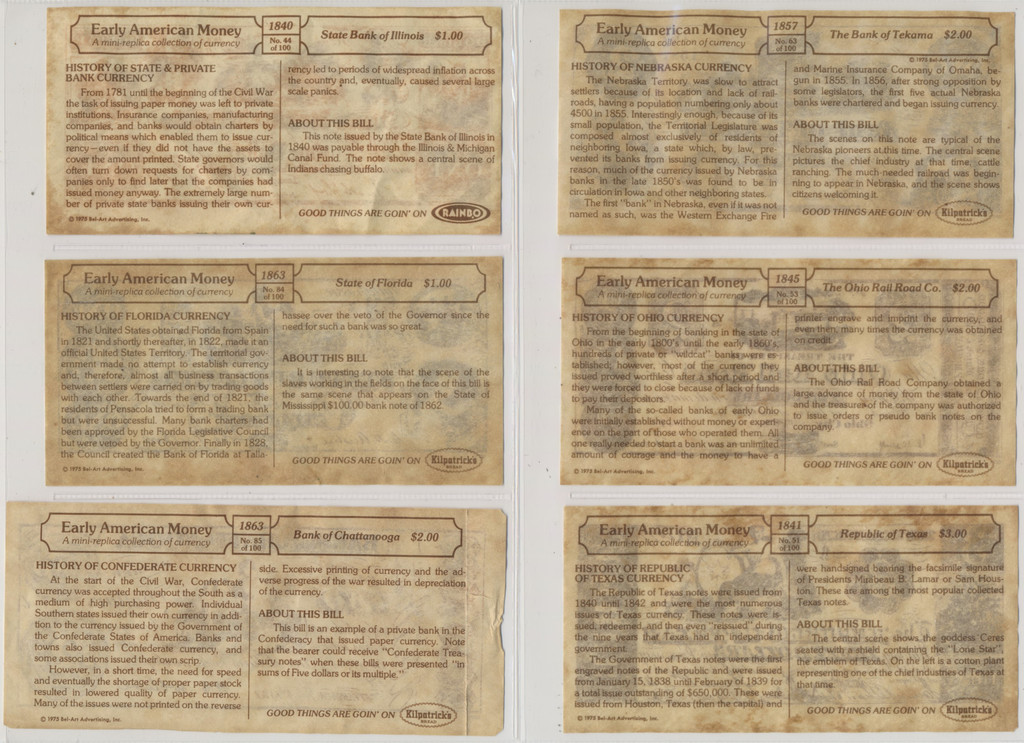 Early American Money
A mini-replica collection of currency
1840
No. 44
of 100
State Bank of Illinois $1.00
HISTORY OF STATE & PRIVATE
BANK CURRENCY
From 1781 until the beginning of the Civil War
the task of issuing paper money was left to private
institutions. Insurance companies, manufacturing
companies, and banks would obtain charters by
political means which enabled them to issue cur-
rency—even if they did not have the assets to
cover the amount printed. State governors would
often turn down requests for charters by com-
panies only to find later that the companies had
issued money anyway. The extremely large num-
ber of private state banks issuing their own cur-
© 1975 Bel-Art Advertising, Inc.
rency led to periods of widespread inflation across
the country and, eventually, caused several large
scale panics.
ABOUT THIS BILL
This note issued by the State Bank of Illinois in
1840 was payable through the Illinois & Michigan
Canal Fund. The note shows a central scene of
Indians chasing buffalo.
GOOD THINGS ARE GOIN' ON RAINBO
Early American Money
A mini-replica collection of currency
1863
No. 84
of 100
State of Florida $1.00
HISTORY OF FLORIDA CURRENCY
The United States obtained Florida from Spain
in 1821 and shortly thereafter, in 1822, made it an
official United States Territory. The territorial gov-
ernment made no attempt to establish currency
and, therefore, almost all business transactions
between settlers were carried on by trading goods
with each other. Towards the end of 1821, the
residents of Pensacola tried to form a trading bank
but were unsuccessful. Many bank charters had
been approved by the Florida Legislative Council
but were vetoed by the Governor. Finally in 1828,
the Council created the Bank of Florida at Talla-
© 1975 Bel-Art Advertising, Inc.
hassee over the veto of the Governor since the
need for such a bank was so great.
ABOUT THIS BILL
It is interesting to note that the scene of the
slaves working in the fields on the face of this bill is
the same scene that appears on the State of
Mississippi $100.00 bank note of 1862.
GOOD THINGS ARE GOIN' ON Kilpatrick's
BREAD
Early American Money
A mini-replica collection of currency
1863
No. 85
of 100
Bank of Chattanooga $2.00
HISTORY OF CONFEDERATE CURRENCY
At the start of the Civil War, Confederate
currency was accepted throughout the South as a
medium of high purchasing power. Individual
Southern states issued their own currency in addi-
tion to the currency issued by the Government of
the Confederate States of America. Banks and
towns also issued Confederate currency, and
some associations issued their own scrip.
However, in a short time, the need for speed
and eventually the shortage of proper paper stock
resulted in lowered quality of paper currency.
Many of the issues were not printed on the reverse
© 1975 Bel-Art Advertising, Inc.
side. Excessive printing of currency and the ad-
verse progress of the war resulted in depreciation
of the currency.
ABOUT THIS BILL
This bill is an example of a private bank in the
Confederacy that issued paper currency. Note
that the bearer could receive "Confederate Trea-
sury notes" when these bills were presented "in
sums of Five dollars or its multiple."
GOOD THINGS ARE GOIN' ON Kilpatrick's
BREAD
Early American Money
A mini-replica collection of currency
1857
No. 63
of 100
The Bank of Tekama $2.00
© 1975 Bel-Art Advertising, Inc.
HISTORY OF NEBRASKA CURRENCY
The Nebraska Territory was slow to attract
settlers because of its location and lack of rail-
roads, having a population numbering only about
4500 in 1855. Interestingly enough, because of its
small population, the Territorial Legislature was
composed almost exclusively of residents of
neighboring Iowa, a state which, by law, pre-
vented its banks from issuing currency. For this
reason, much of the currency issued by Nebraska
banks in the late 1850's was found to be in
circulation in Iowa and other neighboring states.
The first "bank" in Nebraska, even if it was not
named as such, was the Western Exchange Fire
and Marine Insurance Company of Omaha, be-
gun in 1855. In 1856, after strong opposition by
some legislators, the first five actual Nebraska
banks were chartered and began issuing currency.
ABOUT THIS BILL
The scenes on this note are typical of the
Nebraska pioneers at this time. The central scene
pictures the chief industry at that time, cattle
ranching. The much-needed railroad was begin-
ning to appear in Nebraska, and the scene shows
citizens welcoming it.
GOOD THINGS ARE GOIN' ON Kilpatrick's
BREAD
Early American Money
A mini-replica collection of currency
1845
No. 53
of 100
The Ohio Rail Road Co. $2.00
HISTORY OF OHIO CURRENCY
From the beginning of banking in the state of
Ohio in the early 1800's until the early 1860's,
hundreds of private or "wildcat" banks were es-
tablished; however, most of the currency they
issued proved worthless after a short period and
they were forced to close because of lack of funds
to pay their depositors.
Many of the so-called banks of early Ohio
were initially established without money or experi-
ence on the part of those who operated them. All
one really needed to start a bank was an unlimited
amount of courage and the money to have a
© 1975 Bel-Art Advertising, Inc.
printer engrave and imprint the currency, and
even then, many times the currency was obtained
on credit.
ABOUT THIS BILL
The Ohio Rail Road Company obtained a
large advance of money from the state of Ohio
and the treasurer of the company was authorized
to issue orders or pseudo bank notes on the
company.
GOOD THINGS ARE GOIN' ON Kilpatrick's
BREAD
Early American Money
A mini-replica collection of currency
1841
No. 51
of 100
Republic of Texas $3.00
HISTORY OF REPUBLIC
OF TEXAS CURRENCY
The Republic of Texas notes were issued from
1840 until 1842 and were the most numerous
issues of Texas currency. These notes were is-
sued, redeemed, and then even "reissued" during
the nine years that Texas had an independent
government.
The Government of Texas notes were the first
engraved notes of the Republic and were issued
from January 15, 1838 until February of 1839 for
a total issue outstanding of $650,000. These were
issued from Houston, Texas (then the capital) and
© 1975 Bel-Art Advertising, Inc.
were handsigned bearing the facsimile signature
of Presidents Mirabeau B. Lamar or Sam Hous-
ton. These are among the most popular collected
Texas notes.
ABOUT THIS BILL
The central scene shows the goddess Ceres
seated with a shield containing the "Lone Star",
the emblem of Texas. On the left is a cotton plant
representing one of the chief industries of Texas at
that time.
GOOD THINGS ARE GOIN' ON Kilpatrick's
BREAD